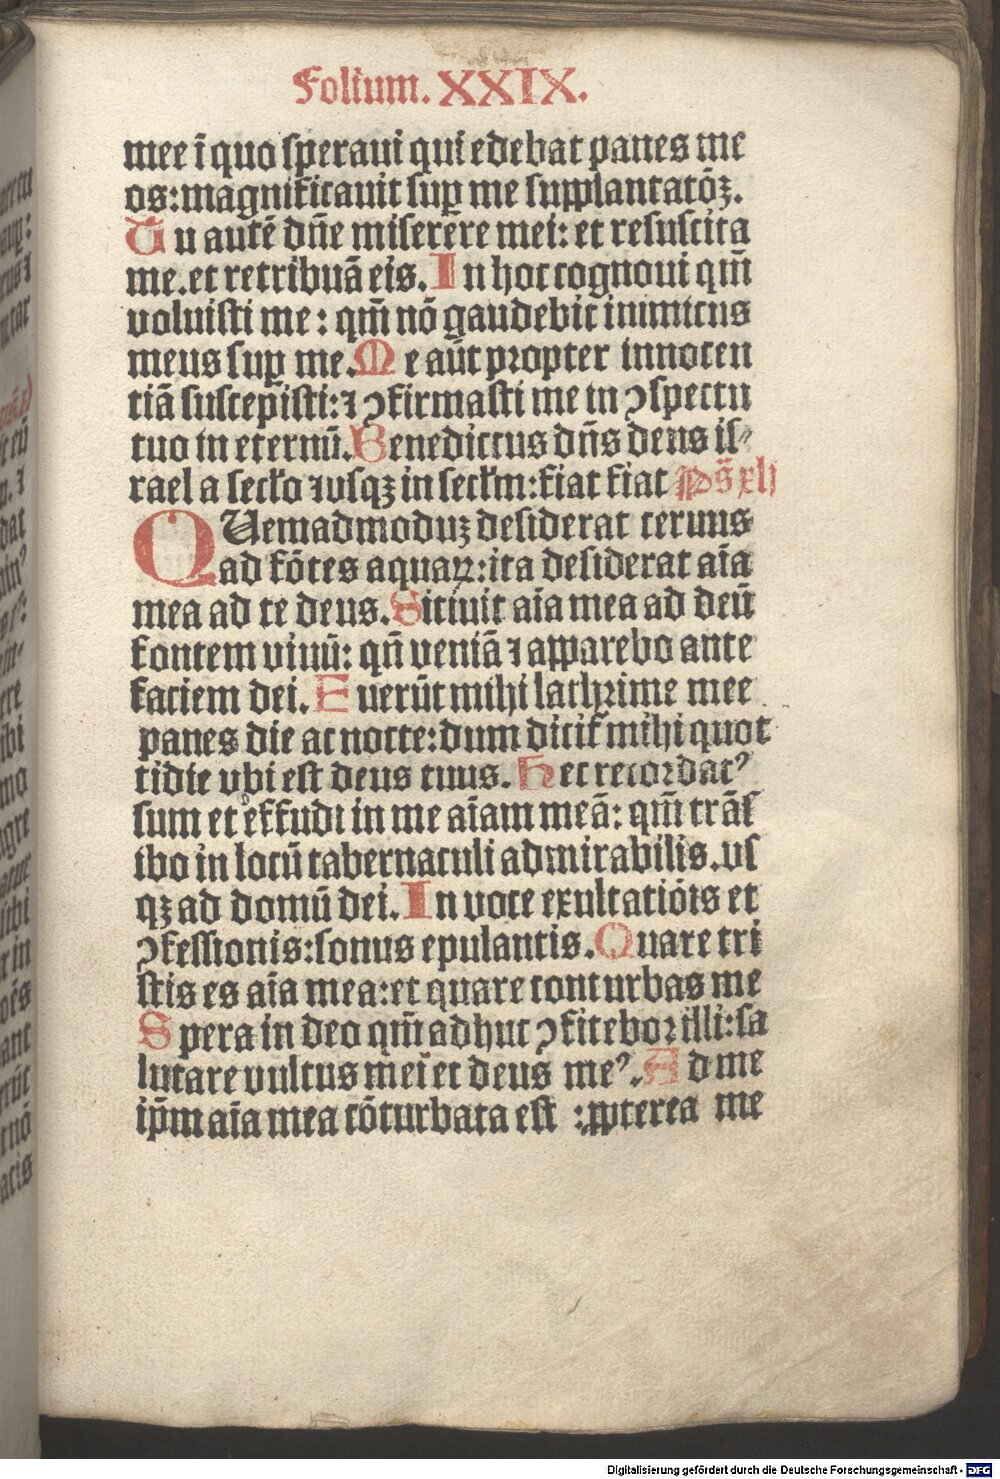 Folium. XXIX.
mee ī quo ſperaui qui edebat panes me
os: magnificauit ſuꝑ me ſupplantatōꝫ.
Tu autē dn̄e miſerere mei: et reſuſcita
me. et retribuā eis. In hoc cognoui qm̄
voluiſti me: qm̄ nō gaudebit inimicus
meus ſuꝑ me. Me aūt propter innocen
tiā ſuſcepiſti: ⁊ ꝯfirmaſti me in ꝯſpectu
tuo in eternū. Benedictus dn̄s deus iſ⸗
rael a ſecl̄o ⁊ vſqꝫ in ſecl̄m: fiat fiat Pſ̄ xlj
QUemadmoduꝫ deſiderat ceruus
ad fōtes aquaꝝ: ita deſiderat aīa
mea ad te deus. Sitiuit aīa mea ad deū
fontem viuū: qn̄ veniā ⁊ apparebo ante
faciem dei. Fuerūt mihi lachrime mee
panes die ac nocte: dum dicit᷑ mihi quot
tidie vbi eſt deus tuus. Hec recordatꝰ
ſum et effudi in me aīam meā: qm̄ trāſ
ibo in locū tabernaculi admirabilis. vſ
qꝫ ad domū dei. In voce exultatiōis et
ꝯfeſſionis: ſonus epulantis. Quare tri
ſtis es aīa mea: et quare conturbas me
Spera in deo qm̄ adhuc ꝯfitebor illi: ſa
lutare vultus mei et deus meꝰ. Ad me
ip̄m aīa mea cōturbata eſt : ꝓpterea me
Digitalisierung gefördert durch die Deutsche Forschungsgemeinschaft - DFG